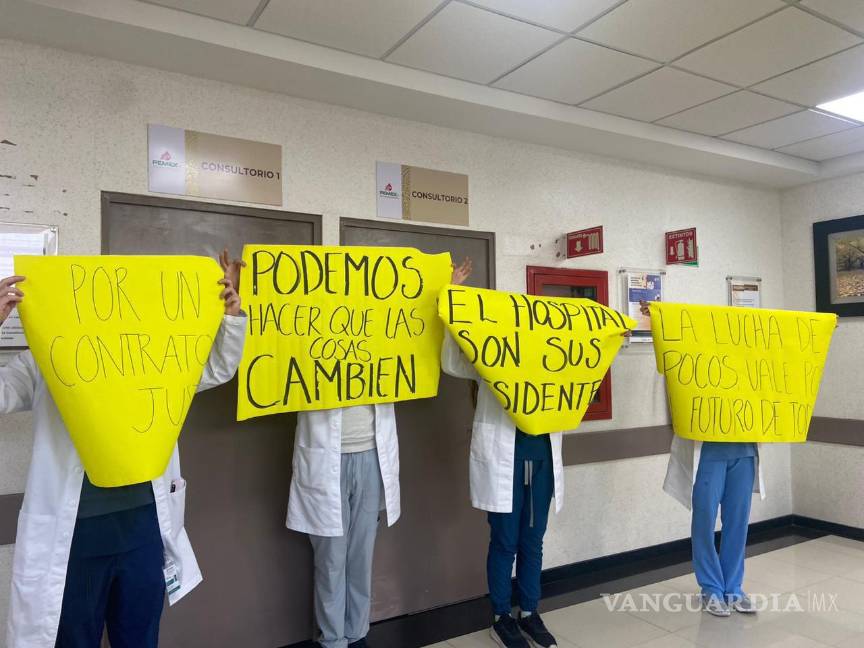 PEMEX
CONSULTORIO 1
PEMEX
CONSULTORIO 2
EXTINTOR
POR UN
CONTRATO
PODEMOS
HACER QUE LAS
COSAS
CAMBIEN
EL HOSPITAL
SON SUS
LA LUCHA DE
POCOS VALE
FUTURO DE
VANGUARDIA MX